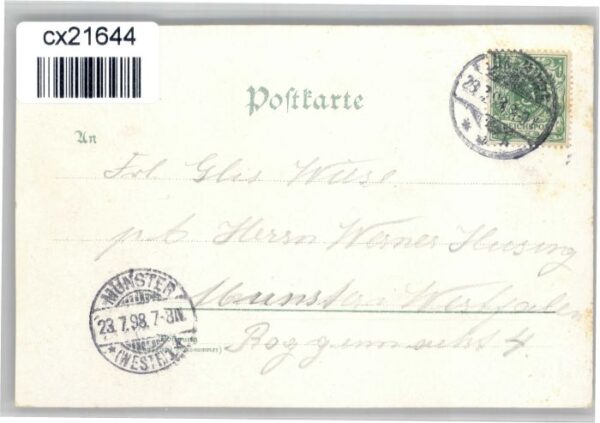 cx21644
Postkarte
An
Frl. Elis Wiese
p. A. Herrn Werner Hüsing
Münster Westfalen
Roggenmarkt 4.
MÜNSTER
23.7.98.7-8N.
* (WESTF.) *